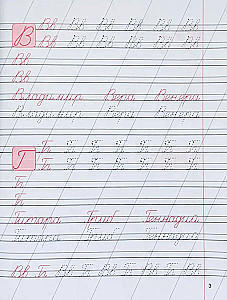 В Вв Вв Вв Вв Вв Вв
Вв Вв Вв Вв Вв Вв
Вв
Вв
Владимир Вера Венера
Владимир Вера Венера
Г Гг Гг Гг Гг Гг Гг
Гг Гг Гг Гг Гг Гг
Гг
Гг
Глеб Геннадий
Глеб Геннадий
Вв Гг Вв Гг Вв Гг Вв Гг
3